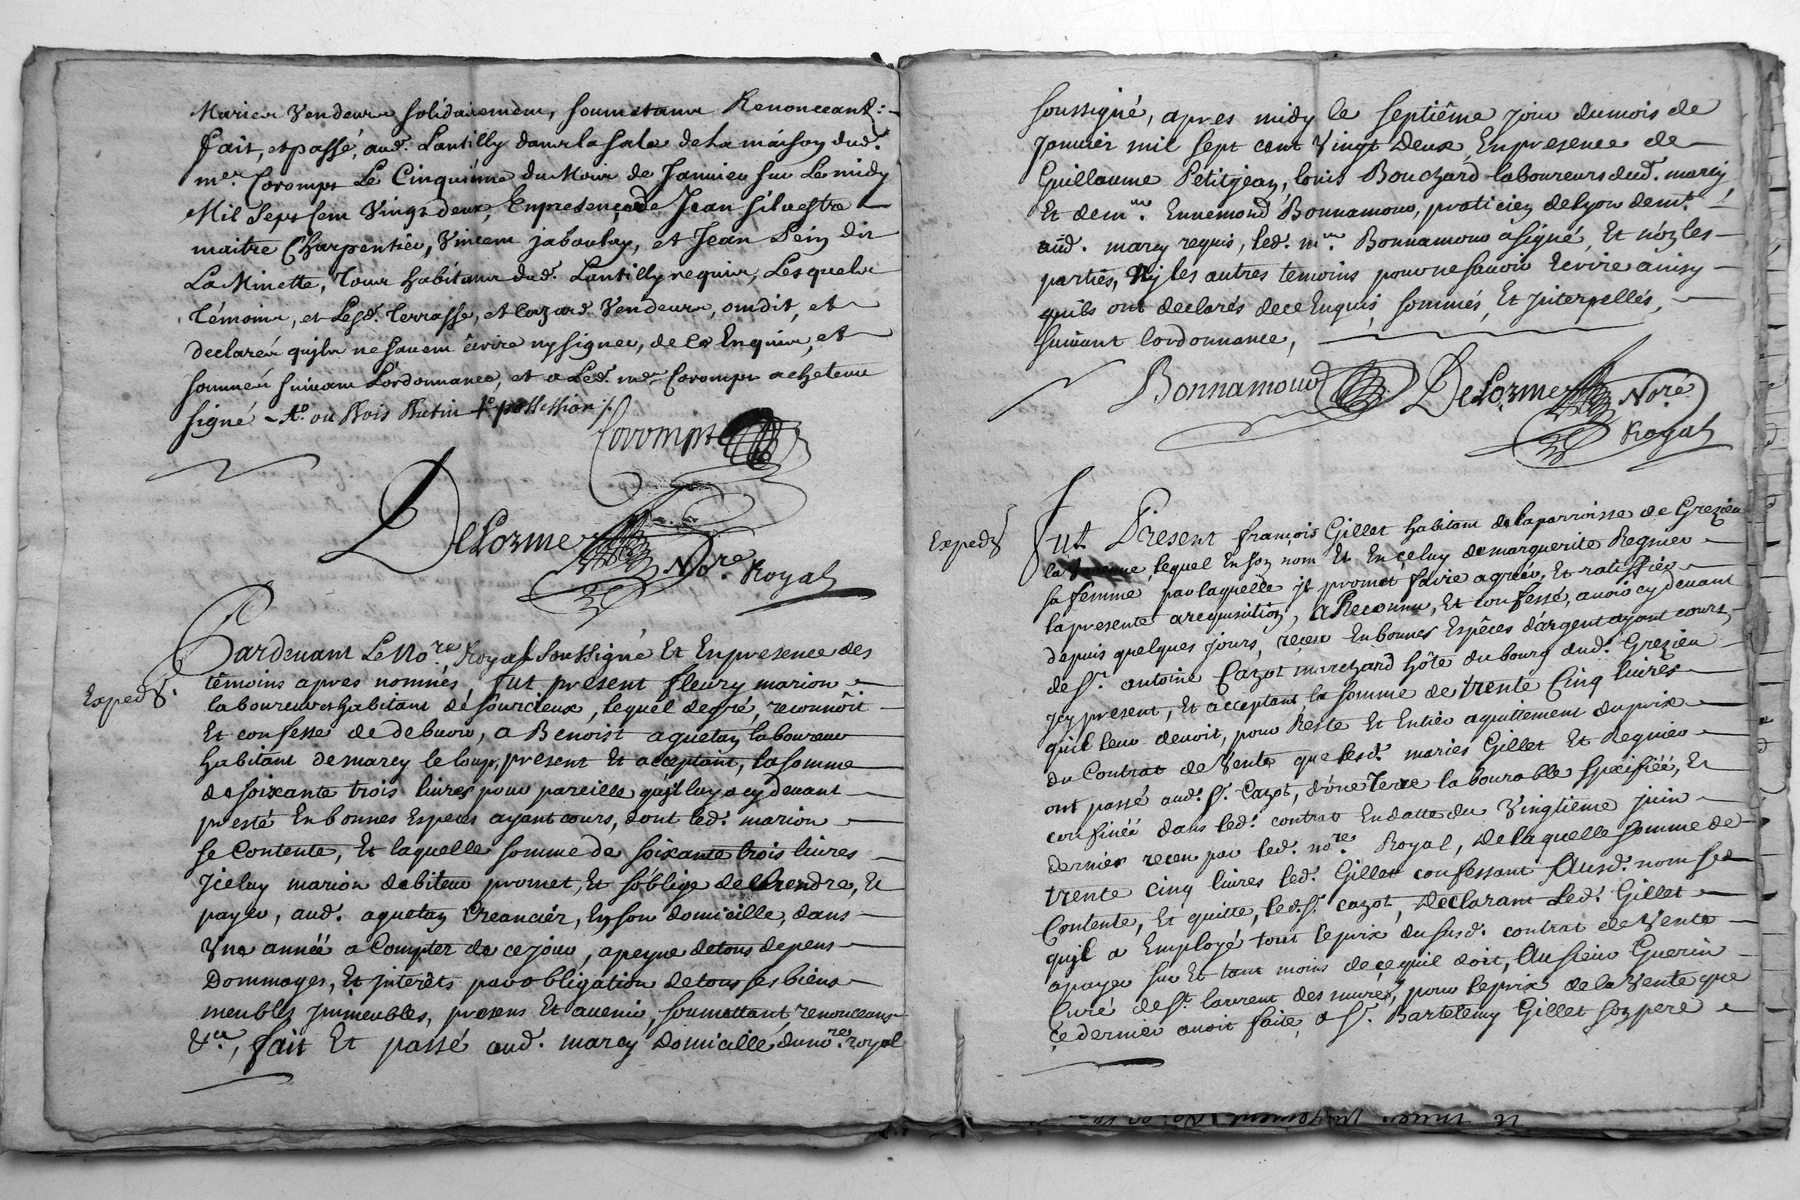 Mariez Vendeurs solidairement, soumetant Renonceant :-
fait, et passé, aud. Lantilly dans la sale de la maison dud.
mer. Coromps Le Cinquiéme du Mois de Janvier sur Le midy
Mil Sept sent Vingt deux, En presence de Jean silvestre
maitre Charpentier, Vincent jaboulay, et Jean Dit
La Minette, Tous habitans dud. Lantilly requis, Lesquels
témoins, et Lesd. Terrasse, et Cazard Vendeurs, ont dit, et
declarés quils ne savent écrire ny signer, de ce Enquis, et
sommés suivant L'ordonnance, et a Led. mer. Coromps acheteur
signé
Coromps
DeLorme
Nore. Royal
Expedé.
Pardevant Le Nore. Royal soussigné Et En presence des
témoins apres nommés, fut present fleury marion
laboureur habitant de sourcieux, lequel de gré, reconnoit
Et confesse de debvoir, a Benoist aquetan laboureur
habitant de marcy le loup, present Et acceptant, la somme
de soixante trois livres pour pareille quil luy a cy devant
presté En bonnes Especes ayant cours, dont led. marion
se Contente, Et laquelle somme de soixante trois livres
Jceluy marion debiteur promet, Et s'oblige de Rendre, Et
payer, aud. aquetan Creancier, En son domicille, dans
Une année a Compter de ce jour, a peyne de tous depens
Dommages, Et jnterêts par obligation de tous ses biens
meubles jmmeubles, presens Et avenir, soumettant, renonceans
&ca., fait Et passé aud. marcy Domicille du nore. royal
soussigné, apres midy le septiême jour du mois de
Janvier mil sept cent Vingt Deux, En presence de
Guillaume Petitjean, louis Bouchard laboureurs dud. marcy,
Et de mre. Ennemond Bonnamour, praticien de lyon demt.
aud. marcy requis, led. mre. Bonnamour a signé, Et non les
parties, Ny les autres temoins pour ne savoir Ecrire ainsy
quils ont declarés de ce Enquis, sommés, Et jnterpellés,
suivant lordonnance,
Bonnamour
DeLorme
Nore.
Royal
Expedé
fut Present françois Gillet habitant de la parroisse de Grezieu
la, lequel En son nom Et En celuy de marguerite Regnier
sa femme par laquelle jl promet faire agréer, Et ratiffier
la presente a requisition, a Reconnu, Et confessé, avoir cy devant
depuis quelques jours, receu En bonnes Espêces d'argent ayant cours
de sr. antoine Cazot marchand hôte du bourg dud. Grezieu
jcy present, Et acceptant, la somme de trente Cinq livres
quil leur devoit, pour Reste Et Entier aquittement du prix
du Contrat de Vente que lesd. mariés Gillet Et Regnier
ont passé aud. sr. Cazot, d'une Terre labourable spécifiée, Et
confinée dans led. contrat En datte du Vingtiême juin
dernier receu par led. nore. Royal, de laquelle somme de
trente cinq livres led. Gillet confessant Ausd. nom se
Contente, Et quitte, led. sr. cazot, declarant Led. Gillet
quil a Employé tout le prix du susd. contrat de Vente
a payer sur Et tant moins de ce quil doit, Au sieur Guerin
Curé de st. laurent des mures, pour le prix de la Vente que
ce dernier avoit faite, a sr. Bartelemy Gillet son pere